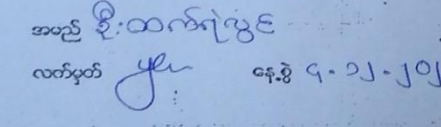 အမည် ဦးထက်ရဲလွင်
လက်မှတ် နေ့စွဲ ၄.၁၂.၂၀၂